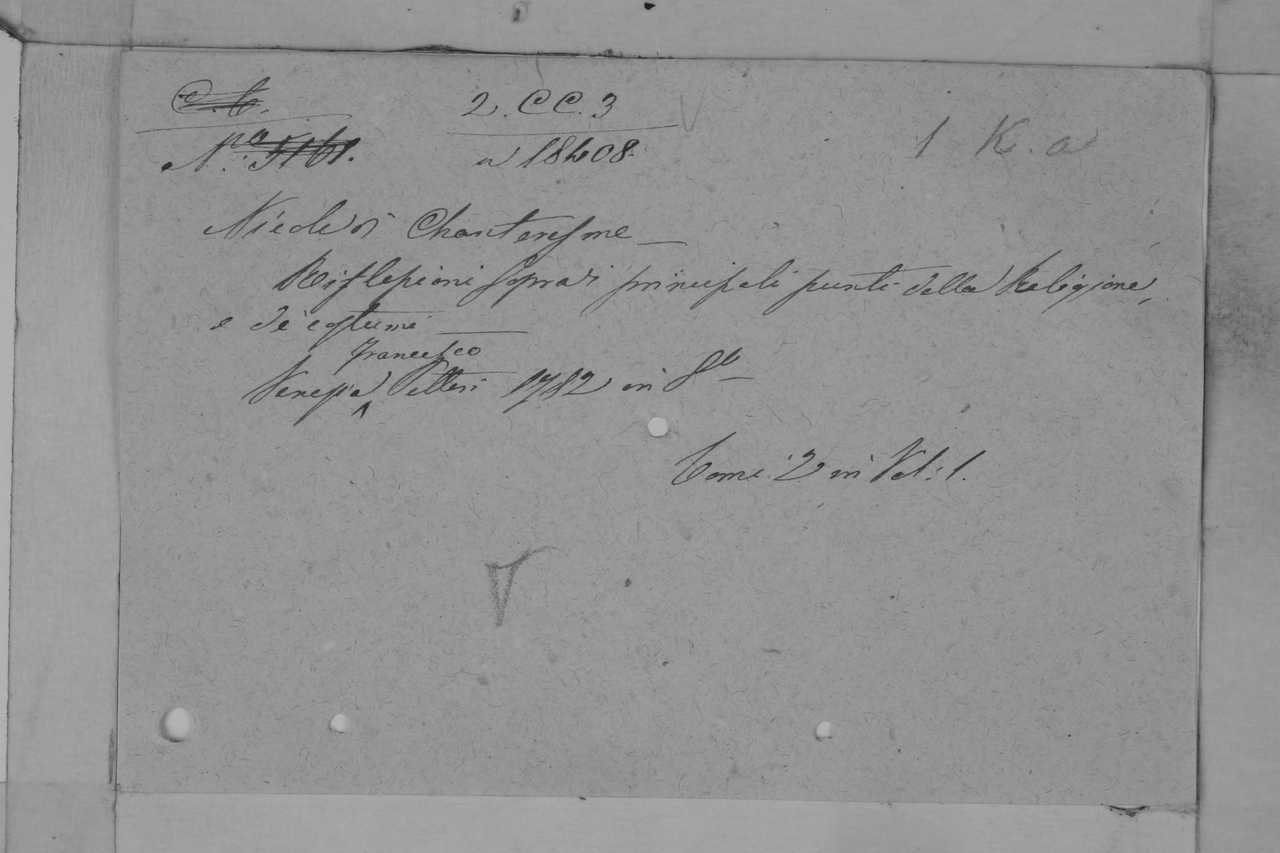 C.C. 2.CC.3 1 K. a
Nº. 5161. a 18408.
Nicole di Chanteresme
Riflessioni sopra i principali punti della Religione,
e de' costumi
Francesco
Venezia Pitteri 1782 in 8º
Tomi 2 in Vol: 1.